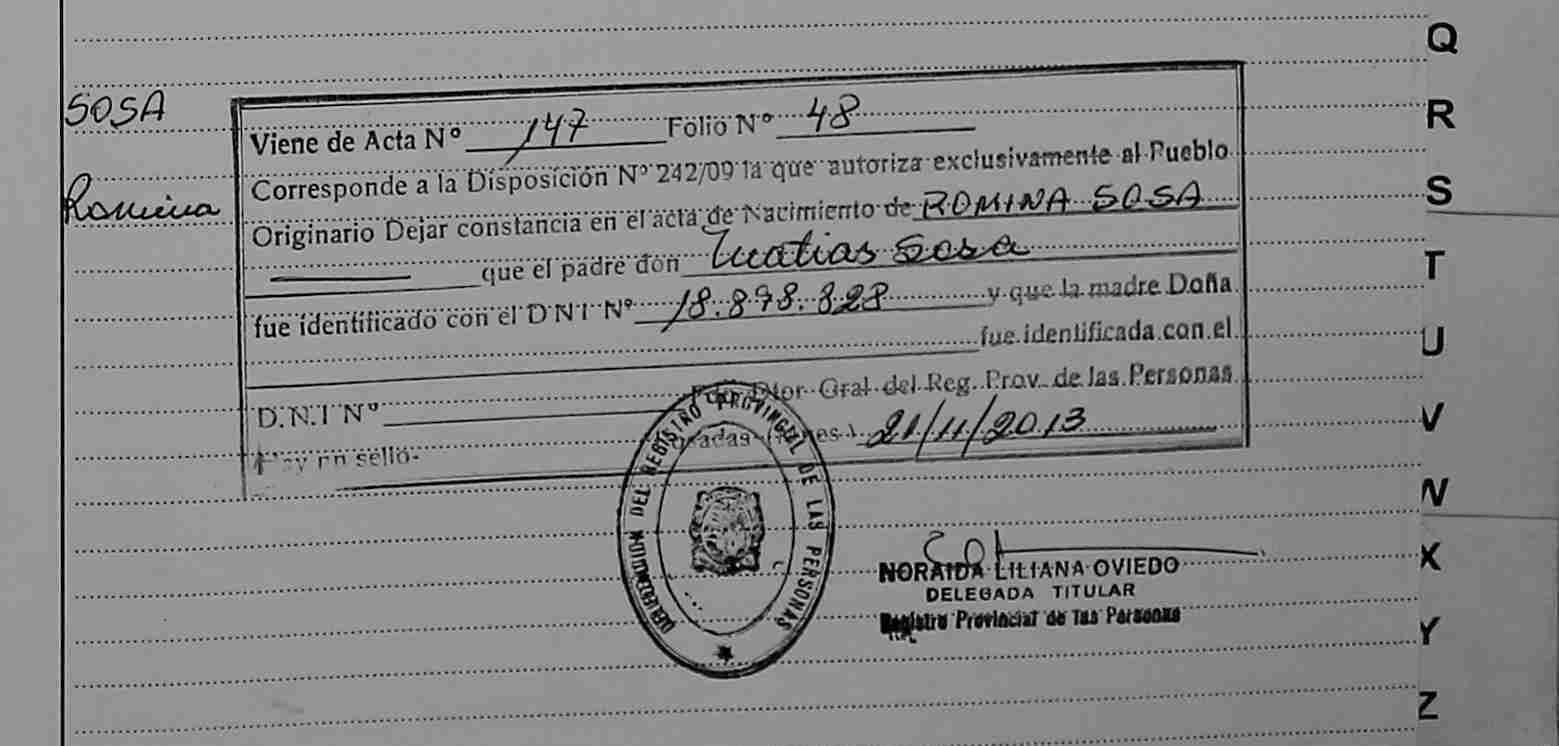 Q
SOSA
Viene de Acta Nº 147 Folio Nº 48
R
Romina
Corresponde a la Disposición Nº 242/09 la que autoriza exclusivamente al Pueblo
S
Originario Dejar constancia en el acta de Nacimiento de ROMINA SOSA
que el padre don Matias Sosa
T
fue identificado con el DNI Nº 18.898.828 y que la madre Doña
fue identificada con el
U
D.N.I Nº Dtor Gral del Reg. Prov. de las Personas
21/11/2013
V
Hay un sello-
DELEGACION DEL REGISTRO PROVINCIAL DE LAS PERSONAS
W
X
NORAIDA LILIANA OVIEDO
DELEGADA TITULAR
Registro Provincial de las Personas
Y
Z